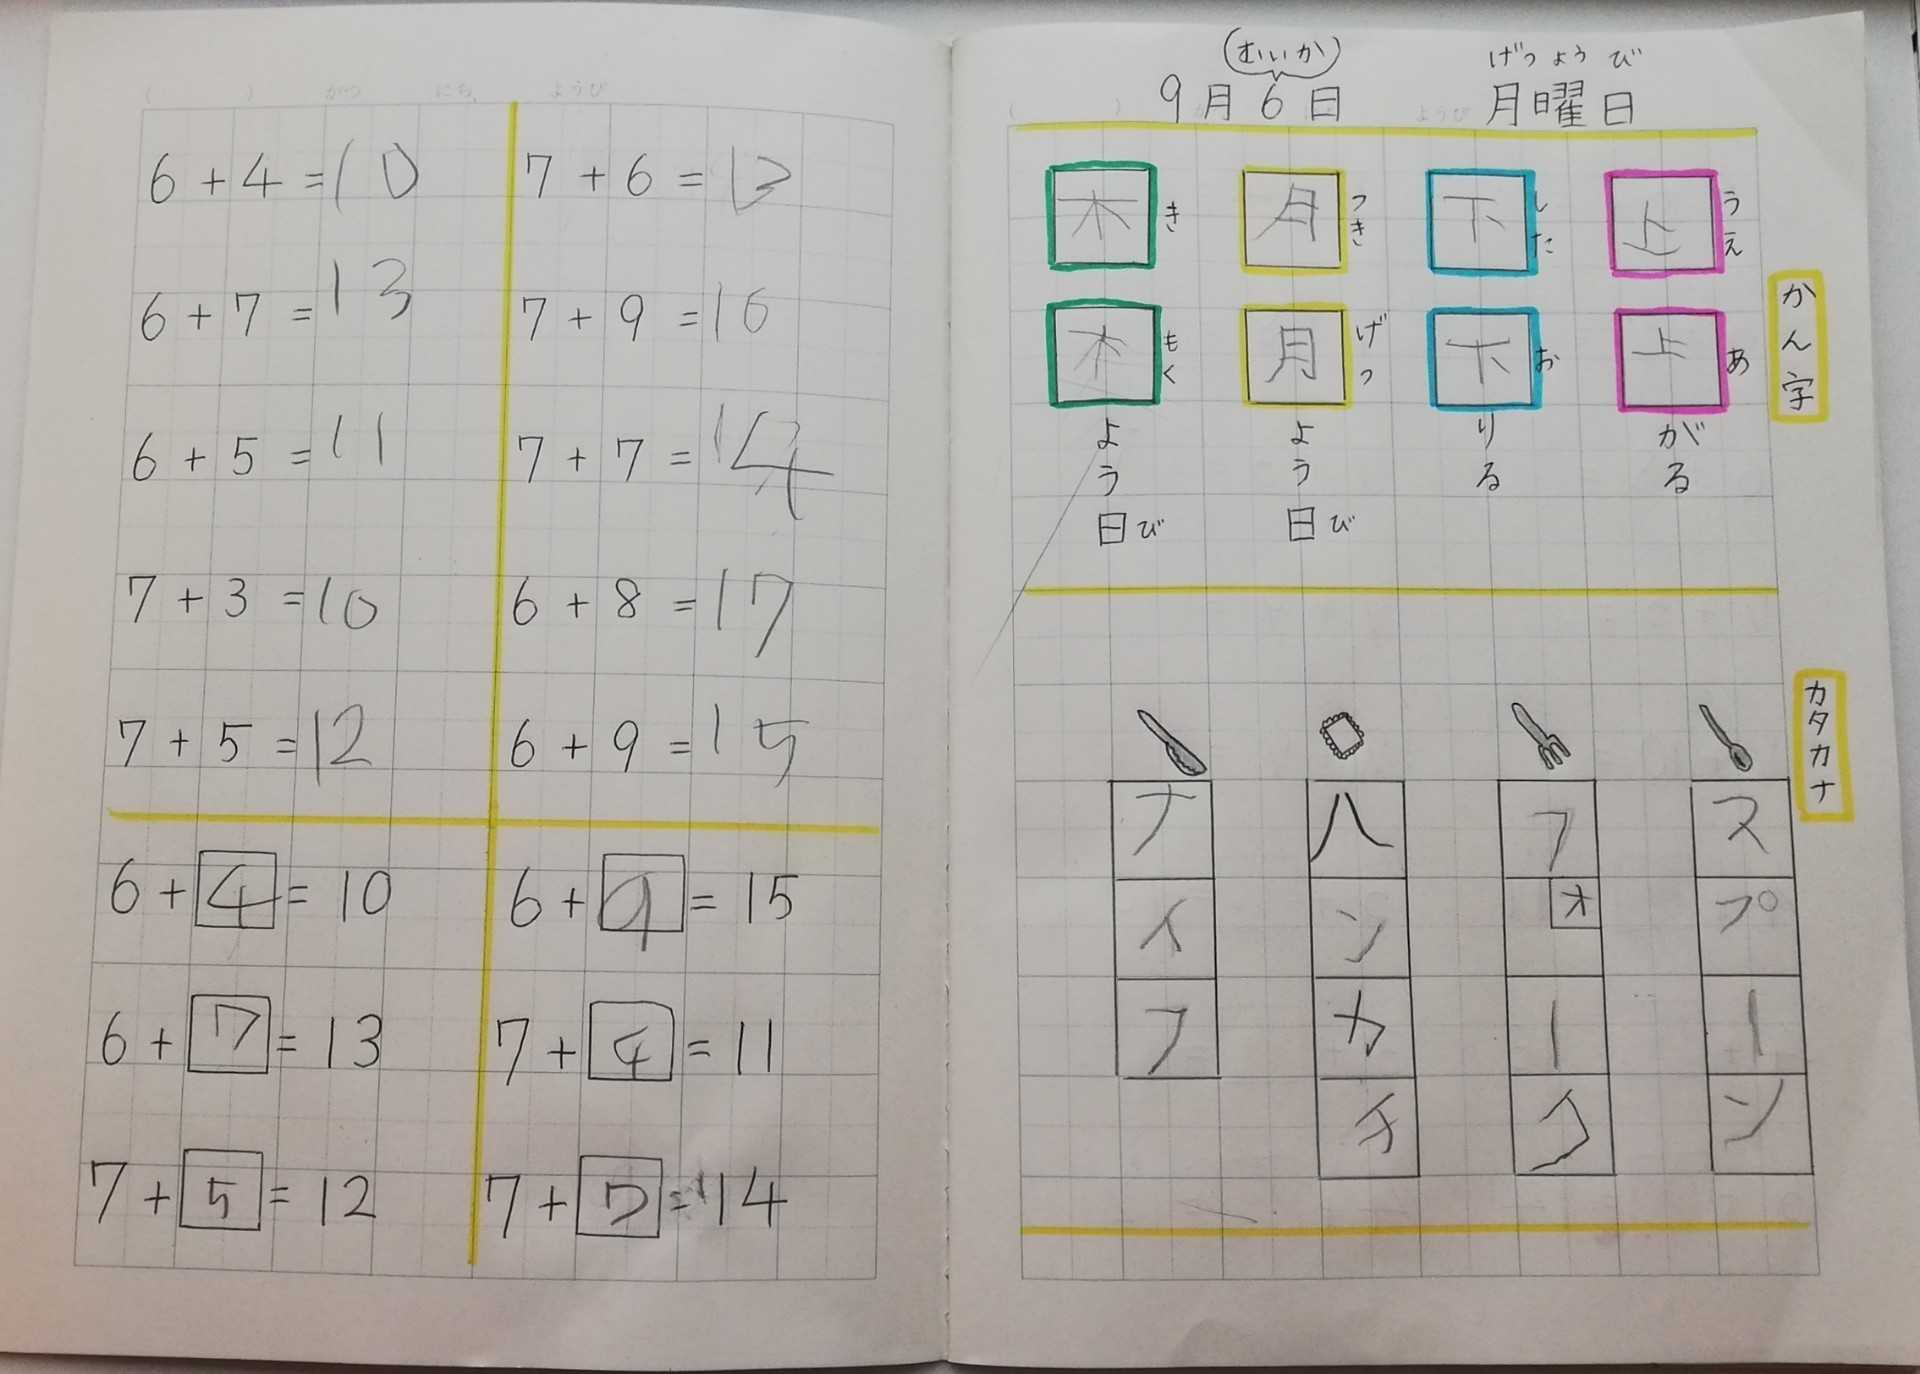 ( ) がつ にち ようび
6 + 4 = 10
6 + 7 = 13
6 + 5 = 11
7 + 3 = 10
7 + 5 = 12
7 + 6 = 13
7 + 9 = 16
7 + 7 = 14
6 + 8 = 17
6 + 9 = 15
6 + 4 = 10
6 + 7 = 13
7 + 5 = 12
6 + 9 = 15
7 + 4 = 11
7 + 7 = 14
むいか
げつようび
9月6日 月曜日
かん字
上 うえ
上 あ がる
下 した
下 お りる
月 つき
月 げつ よう日 び
木 き
木 もく よう日 び
カタカナ
スプーン
フォーク
ハンカチ
ナイフ